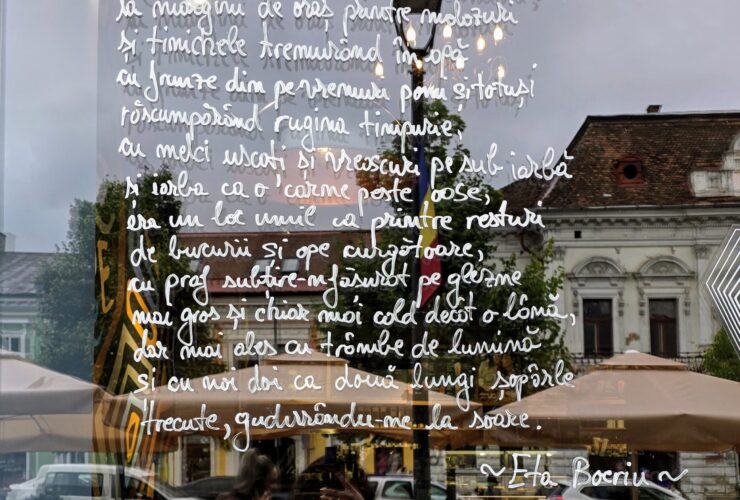 la margini de oraș printre molozuri
și tinichele tremurând în apă
cu frunze din pe vremuri pomi și totuși
răscumpărând rugina timpurie,
cu melci uscați și vreascuri pe sub iarbă
și iarba ca o carne peste oase,
era un loc umil ca printre resturi
de bucurii și ape curgătoare,
cu praf subțire-nfășurat pe glezne
mai gros și chiar mai cald decât o lână,
dar mai ales cu trâmbe de lumină
și cu noi doi ca două lungi șopârle
trecute, gudurându-ne la soare.
~ Eta Boeriu ~